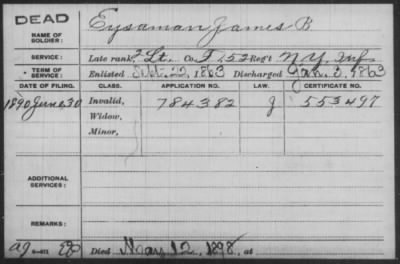 DEAD
NAME OF SOLDIER: Eysaman James B
SERVICE: Late rank, 2 Lt. Co. F, 152 Reg't N.Y. Inf
TERM OF SERVICE: Enlisted 22, 1863 Discharged Jan. 3, 1863
DATE OF FILING. CLASS. APPLICATION NO. LAW. CERTIFICATE NO.
1890 June 30 Invalid, 784382 J 553497
Widow,
Minor,
ADDITIONAL SERVICES:
REMARKS:
Died May 12, 1898, at